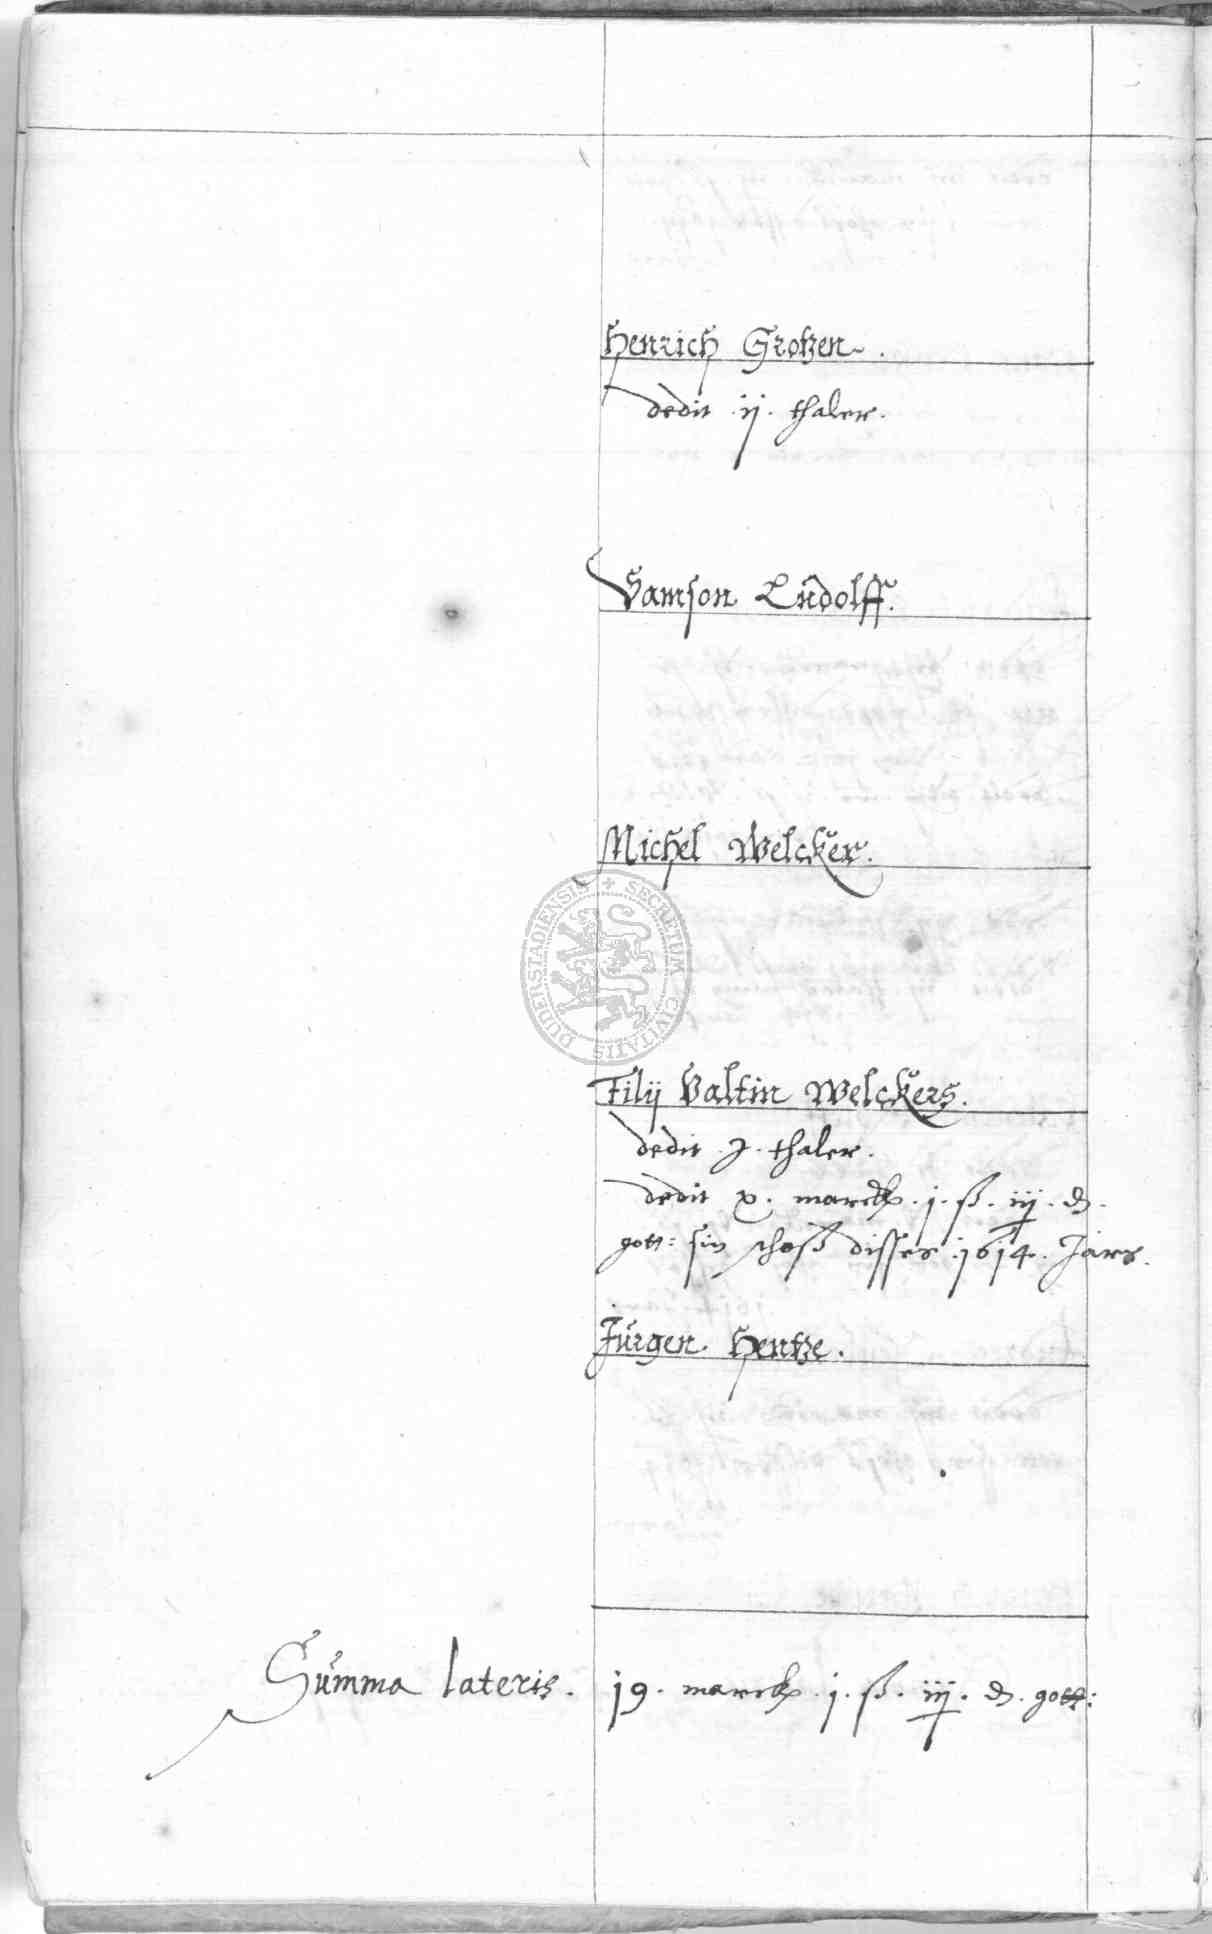 Henrich Grotzen.
dedit ij. thaler.
Samson Ludolff.
Michel Welcker.
DUDERSTADIENSIS + SECRETUM CIVITATIS
Filij Valtin Welckers.
dedit j. thaler.
dedit x. marck. j. ß. iij. d.
gott: sin schoß disses 1614. Jars.
Jürgen Hentze.
Summa lateris. 19. marck. j. ß. iij. d. gott: